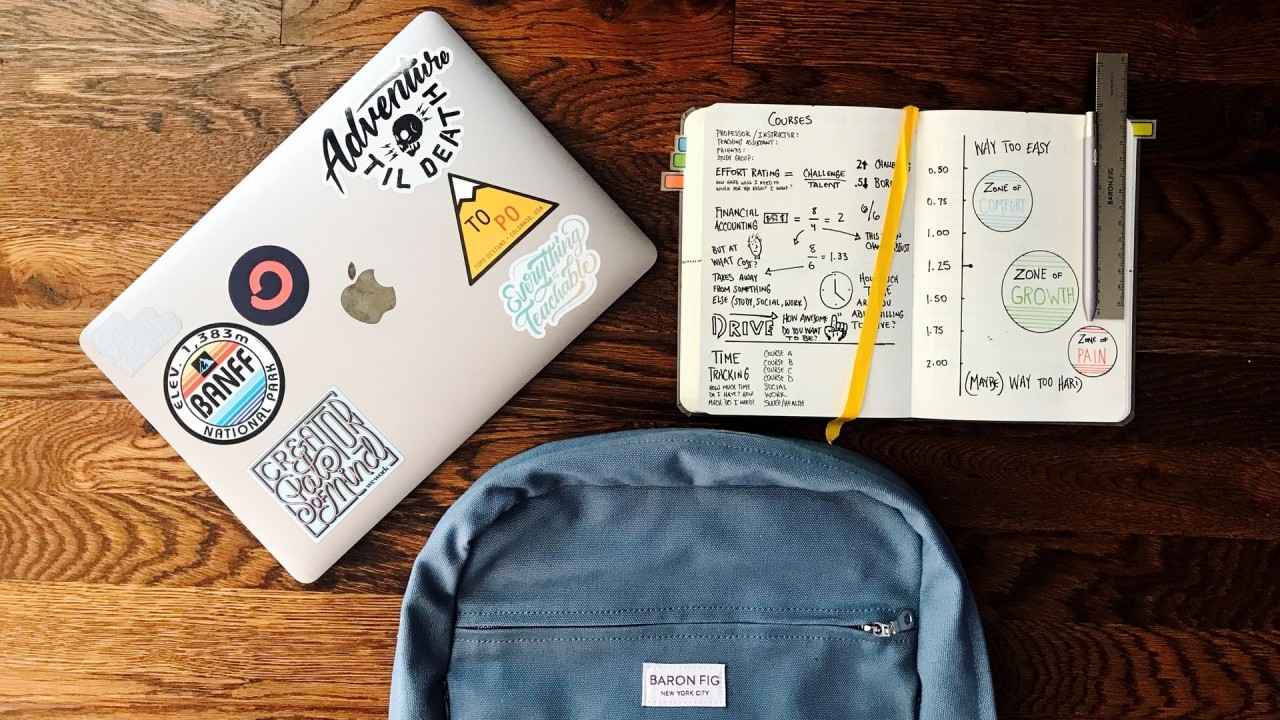 Adventure
'TIL DEATH
TO PO
TOPO DESIGNS • COLORADO, USA
Everything
is
Teachable
ELEV. 1,383m
BANFF
NATIONAL PARK
CREATOR
State
OF Mind
wework
COURSES
PROFESSOR / INSTRUCTOR:
TEACHING ASSISTANT:
FRIENDS:
STUDY GROUP:
EFFORT RATING = CHALLENGE
TALENT
HOW HARD WILL I NEED TO
WORK FOR THE RESULT I WANT?
2↑
.5↓
FINANCIAL
ACCOUNTING
= 8/4 = 2
6/6
THIS
BUT AT
WHAT COST?
8/6 = 1.33
TAKES AWAY
FROM SOMETHING
ELSE (STUDY, SOCIAL, WORK)
HOW MUCH
ARE YOU
DRIVE
HOW AWESOME
DO YOU WANT
TO BE?
TIME
TRACKING
HOW MUCH TIME
DO I HAVE? HOW
MUCH DO I NEED?
COURSE A
COURSE B
COURSE C
COURSE D
SOCIAL
WORK
SLEEP/HEALTH
WAY TOO EASY
0.50
0.75
1.00
1.25
1.50
1.75
2.00
ZONE OF
COMFORT
ZONE OF
GROWTH
ZONE OF
PAIN
(MAYBE) WAY TOO HARD
BARON FIG
BARON FIG
NEW YORK CITY